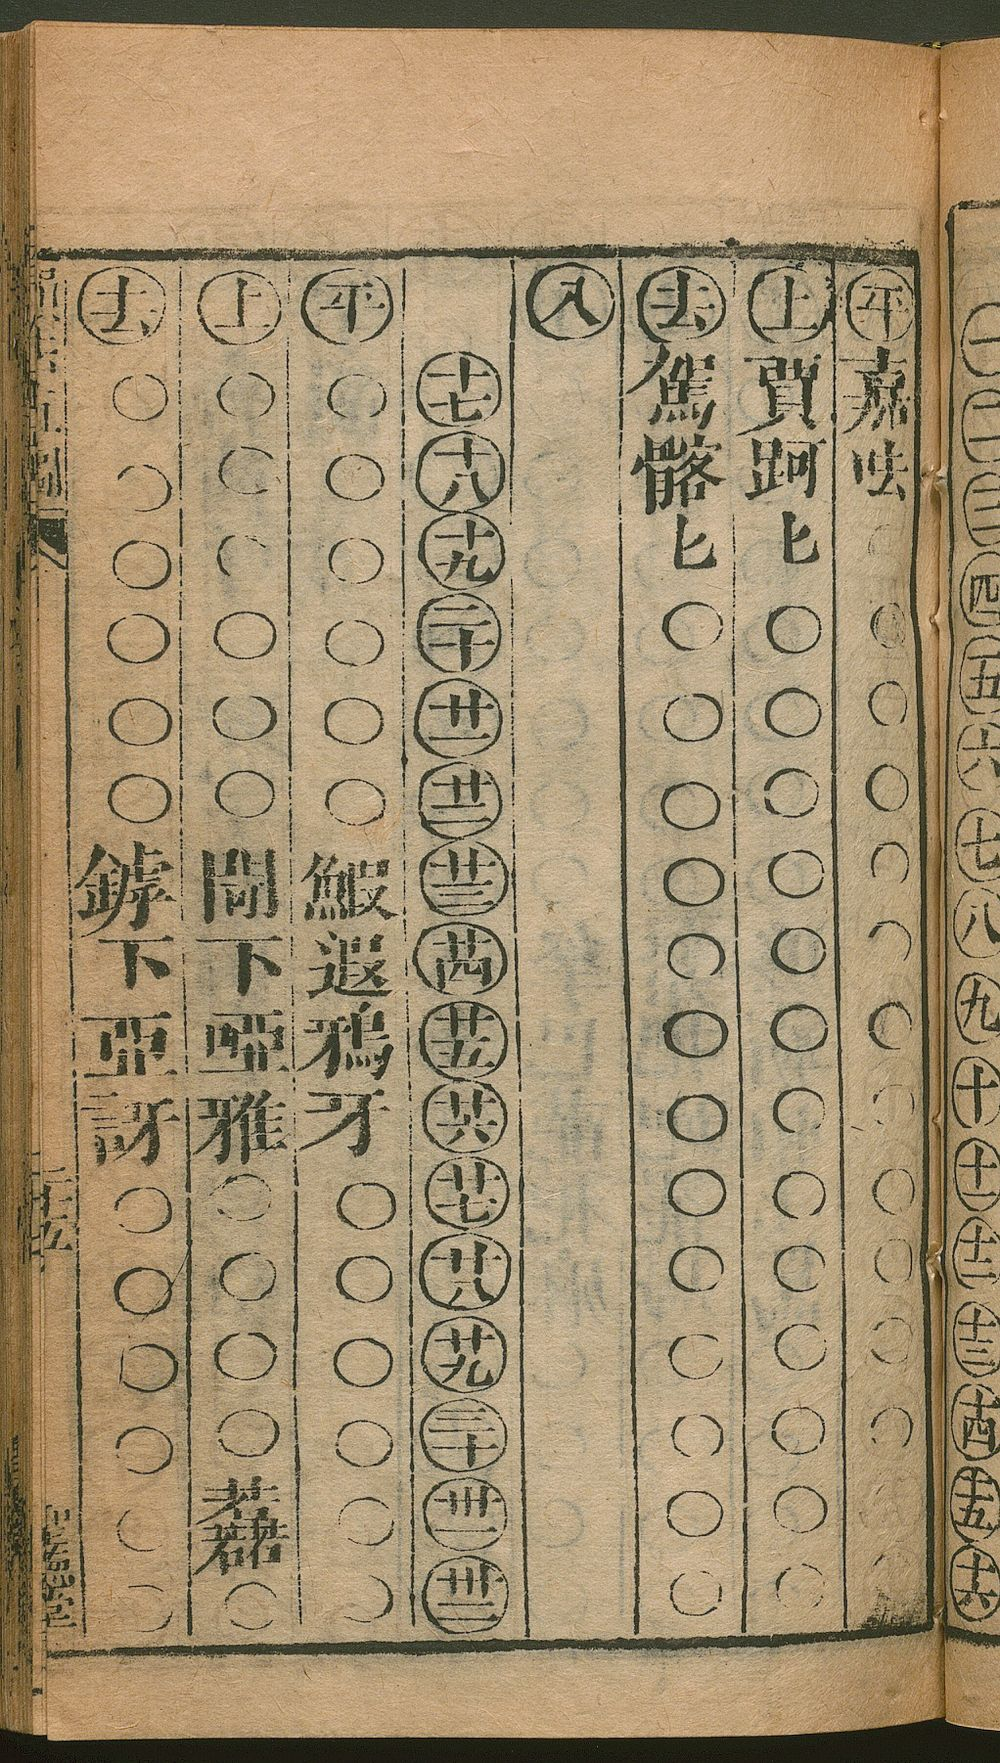 ㊀㊁㊂㊃㊄㊅㊆㊇㊈㊉⑪⑫⑬⑭⑮⑯
平嘉呿○○○○○○○○○○○○○○
上賈跒匕○○○○○○○○○○○○○
去駕髂匕○○○○○○○○○○○○○
入
十七十八十九二十廿一廿二廿三廿四廿五廿六廿七廿八廿九三十卅一卅二
平○○○○○○鰕遐鴉牙○○○○○○
上○○○○○○閜下啞雅○○○○○
去○○○○○○罅下亞訝○○○○○○
二十五